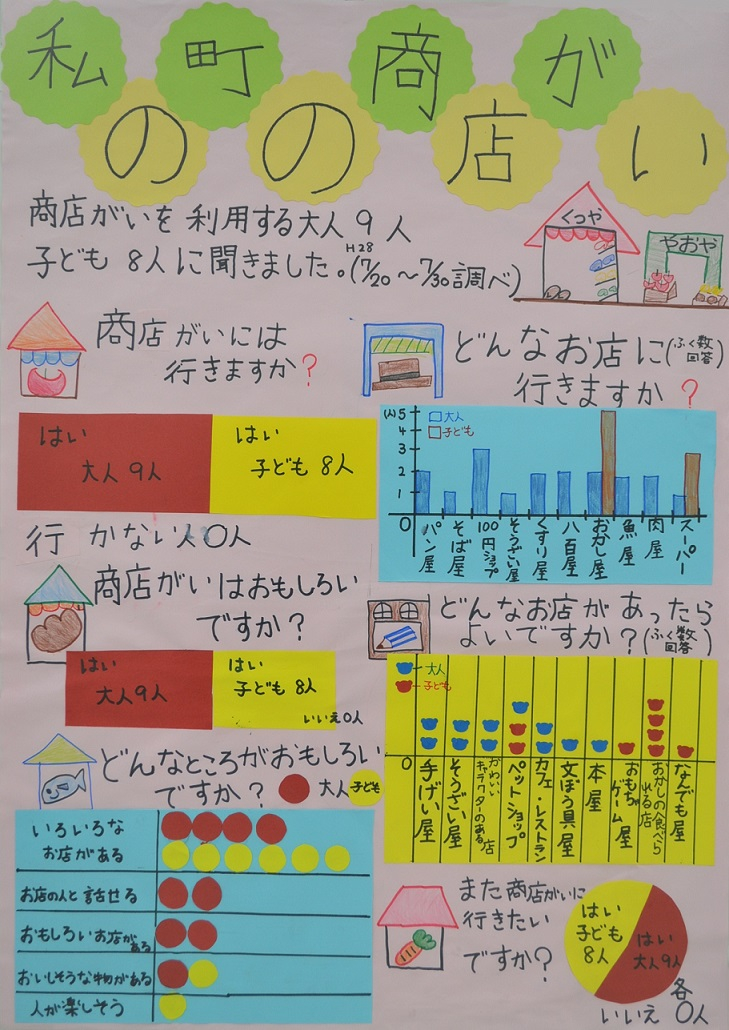 私の町の商店がい
商店がいを利用する大人9人
子ども8人に聞きました。(H28 7/20～7/30調べ)
くつや
やおや
商店がいには
行きますか?
はい
大人9人
はい
子ども8人
行かない人0人
どんなお店に(ふく数回答)
行きますか?
(人)
大人
子ども
5
4
3
2
1
0
パン屋
そば屋
100円ショップ
そうざい屋
くすり屋
八百屋
おかし屋
魚屋
肉屋
スーパー
商店がいはおもしろい
ですか?
はい
大人9人
はい
子ども8人
いいえ0人
どんなお店があったら
よいですか?(ふく数回答)
大人
子ども
0
手げい屋
そうざい屋
かわいいキャラクターのある店
ペットショップ
カフェ・レストラン
文ぼう具屋
本屋
おもちゃゲーム屋
おかしの食べられる店
なんでも屋
どんなところがおもしろい
ですか?
大人
子ども
いろいろな
お店がある
お店の人と話せる
おもしろいお店がある
おいしそうな物がある
人が楽しそう
また商店がいに
行きたい
ですか?
はい
子ども
8人
はい
大人9人
各
いいえ0人